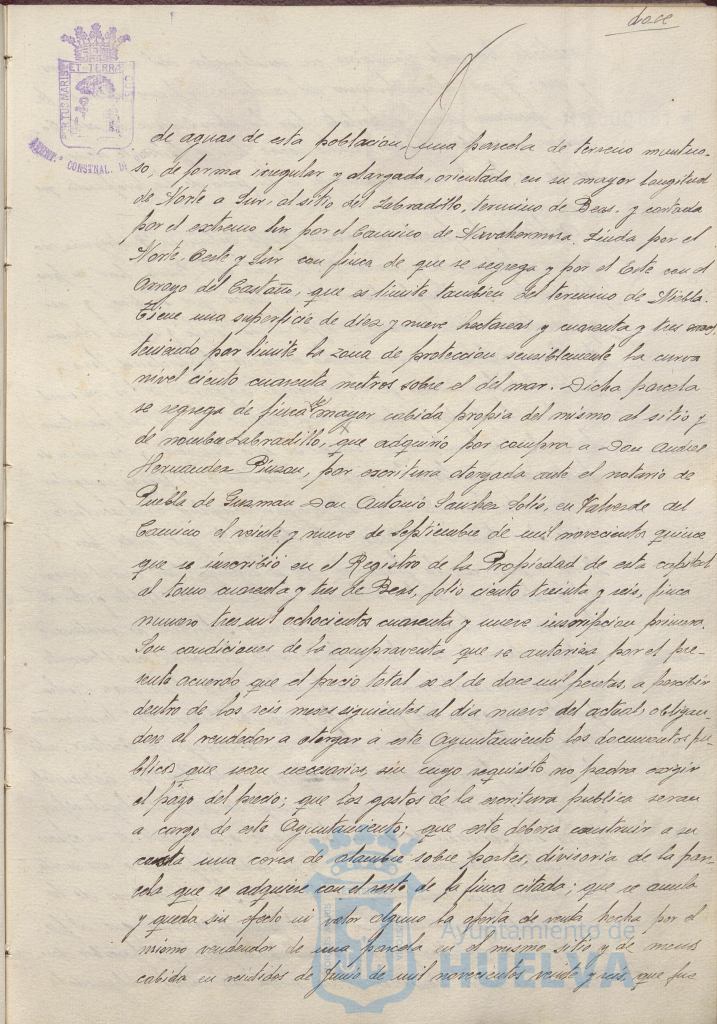 doce
PORTUS MARIS
ET TERRÆ
CUS
AYUNT.º CONSTNAL. DE
de aguas de esta poblacion, una parcela de terreno montuo-
so, de forma irregular y alargada, orientada en su mayor longitud
de Norte a Sur, al sitio del Labradillo, termino de Beas. y cortada
por el extremo Sur por el Camino de Navahermosa. Linda por el
Norte, Oeste y Sur con finca de que se segrega y por el Este con el
Arroyo del Castaño, que es limite tambien del termino de Niebla.
Tiene una superficie de diez y nueve hectareas y cuarenta y tres areas,
teniendo por limite la zona de proteccion sensiblemente la curva
nivel ciento cuarenta metros sobre el del mar. Dicha parcela
se segrega de finca de mayor cabida propia del mismo al sitio y
de nombre Labradillo, que adquirió por compra a Don Andres
Hernandez Pinzon, por escritura otorgada ante el notario de
Puebla de Guzman Don Antonio Sanchez Solis, en Valverde del
Camino el veinte y nueve de Septiembre de mil novecientos quince
que se inscribió en el Registro de la Propiedad de esta capital
al tomo cuarenta y tres de Beas, folio ciento treinta y seis, finca
numero tres mil ochocientos cuarenta y nueve inscripcion primera.
Son condiciones de la compraventa que se autoriza por el pre-
sente acuerdo que el precio total se el de doce mil pesetas, a percibir
dentro de los seis meses siguientes al dia nueve del actual, obligan-
dose al vendedor a otorgar a este Ayuntamiento los documentos pu-
blicos que sean necesarios, sin cuyo requisito no podra exigir
el pago del precio; que los gastos de la escritura publica seran
a cargo de este Ayuntamiento; que este debera construir a su
costa una cerca de alambre sobre postes, divisoria de la par-
cela que se adquiere con el resto de la finca citada; que se anula
y queda sin efecto ni valor alguno la oferta de venta hecha por el
mismo vendedor de una parcela en el mismo sitio y de menos
cabida en veintidos de Junio de mil novecientos veinte y seis, que fue
Ayuntamiento de
HUELVA